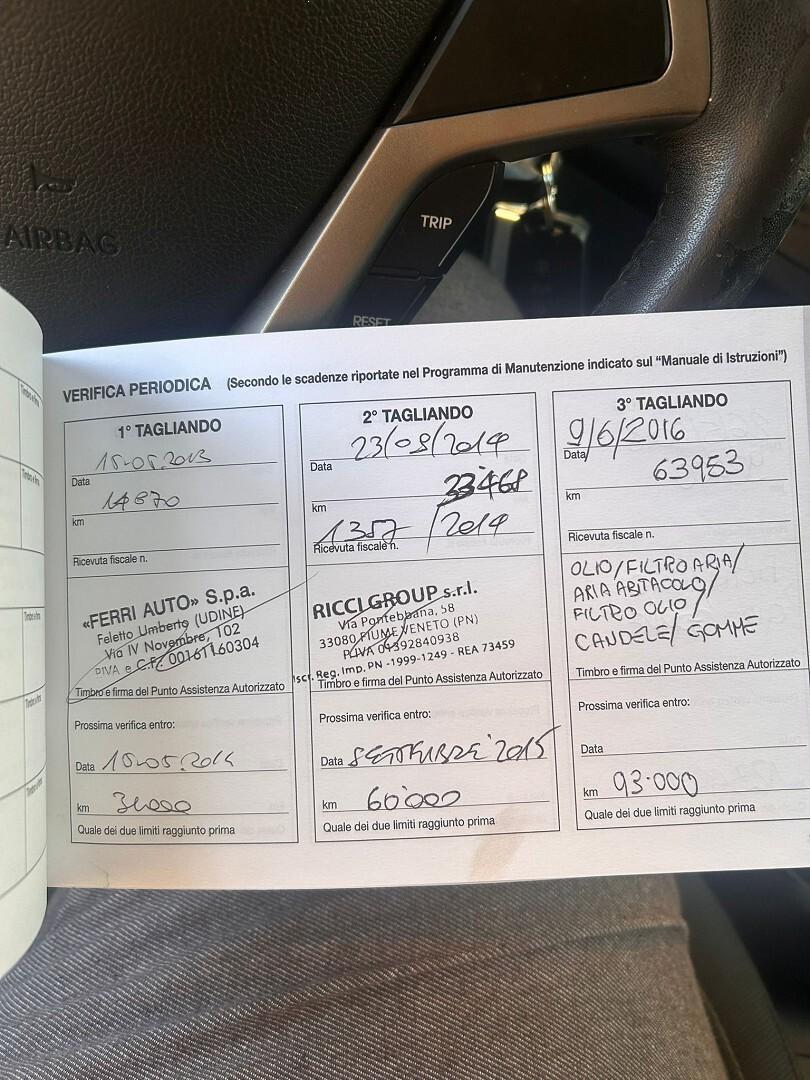 AIRBAG
TRIP
RESET
VERIFICA PERIODICA (Secondo le scadenze riportate nel Programma di Manutenzione indicato sul "Manuale di Istruzioni")
1° TAGLIANDO
15-05.2013
Data
14870
km
Ricevuta fiscale n.
«FERRI AUTO» S.p.a.
Feletto Umberto (UDINE)
Via IV Novembre, 102
P.IVA e C.F. 00161160304
Timbro e firma del Punto Assistenza Autorizzato
Prossima verifica entro:
Data 15-05.2014
km 34000
Quale dei due limiti raggiunto prima
2° TAGLIANDO
23/09/2014
Data
33468
km
1357/2014
Ricevuta fiscale n.
RICCI GROUP s.r.l.
Via Pontebbana, 58
33080 FIUME VENETO (PN)
P.IVA 01392840938
Iscr. Reg. Imp. PN -1999-1249 - REA 73459
Timbro e firma del Punto Assistenza Autorizzato
Prossima verifica entro:
Data SETTEMBRE 2015
km 60'000
Quale dei due limiti raggiunto prima
3° TAGLIANDO
9/6/2016
Data
63953
km
Ricevuta fiscale n.
OLIO/FILTRO ARIA/
ARIA ABITACOLO/
FILTRO OLIO/
CANDELE/ GOMME
Timbro e firma del Punto Assistenza Autorizzato
Prossima verifica entro:
Data
km 93.000
Quale dei due limiti raggiunto prima